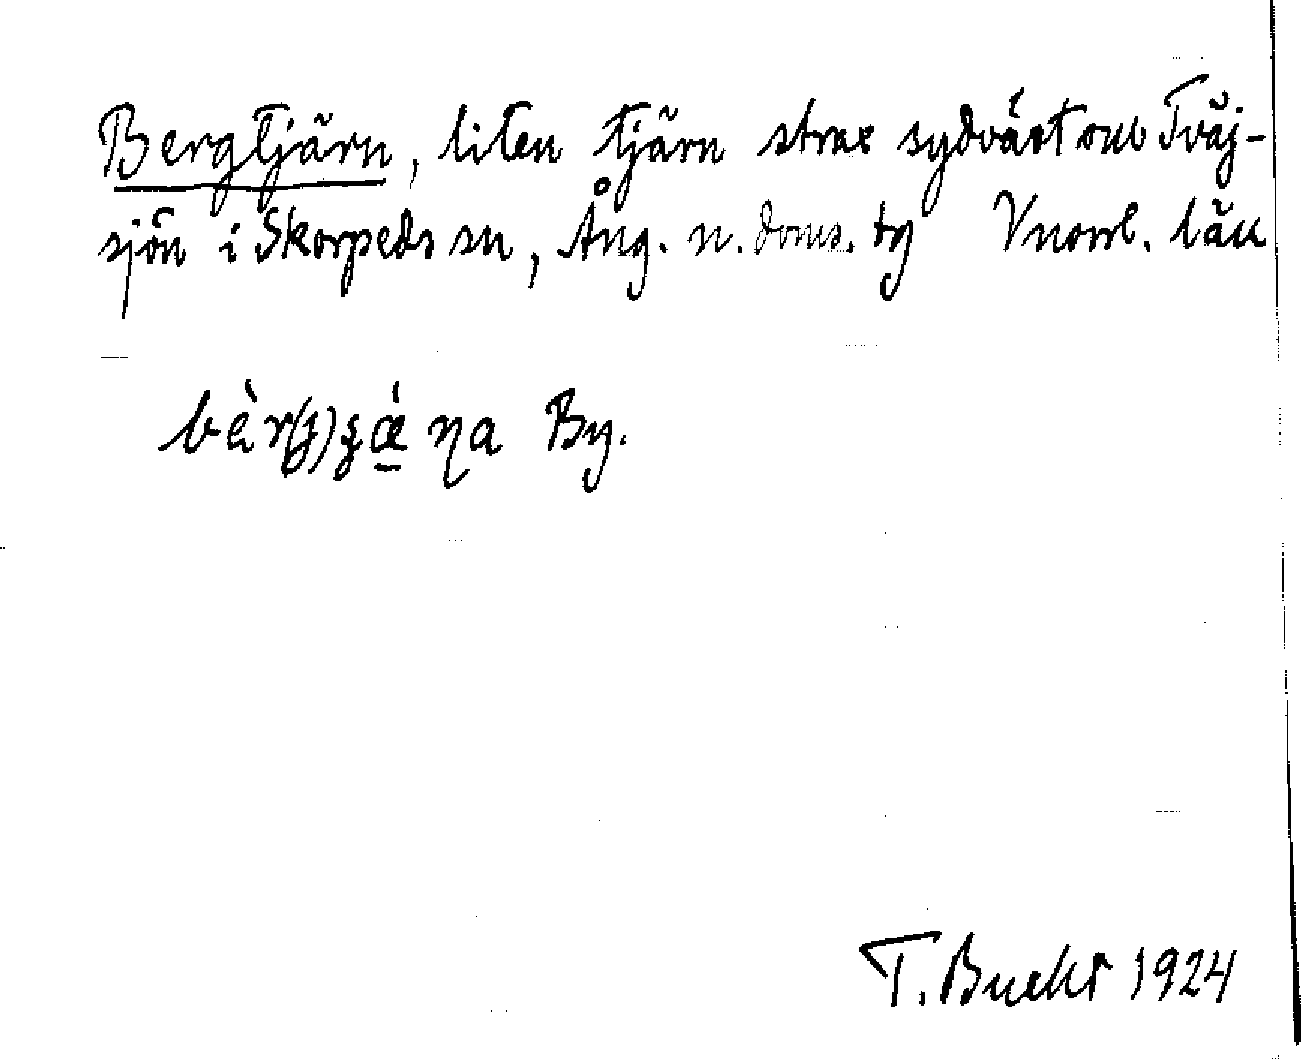 Bergtjärn, liten tjärn strax sydväst om Tväj-
sjön i Skorpeds sn, Ång. n. doms. by Vnorrl. län
By.
T. Bucht 1924